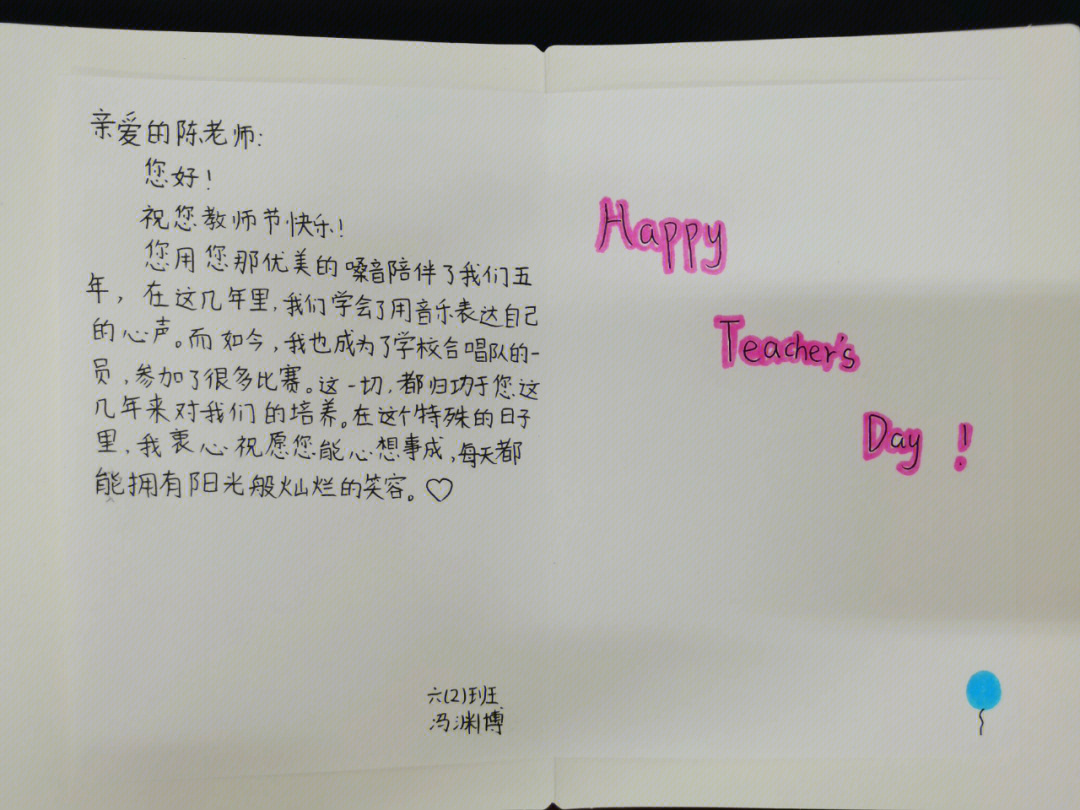 亲爱的陈老师:
您好!
祝您教师节快乐!
您用您那优美的嗓音陪伴了我们五
年，在这几年里，我们学会了用音乐表达自己
的心声。而如今，我也成为了学校合唱队的一
员，参加了很多比赛。这一切，都归功于您这
几年来对我们的培养。在这个特殊的日子
里，我衷心祝愿您能心想事成，每天都
能拥有阳光般灿烂的笑容。♡
六(2)班
冯渊博
Happy
Teacher's
Day !